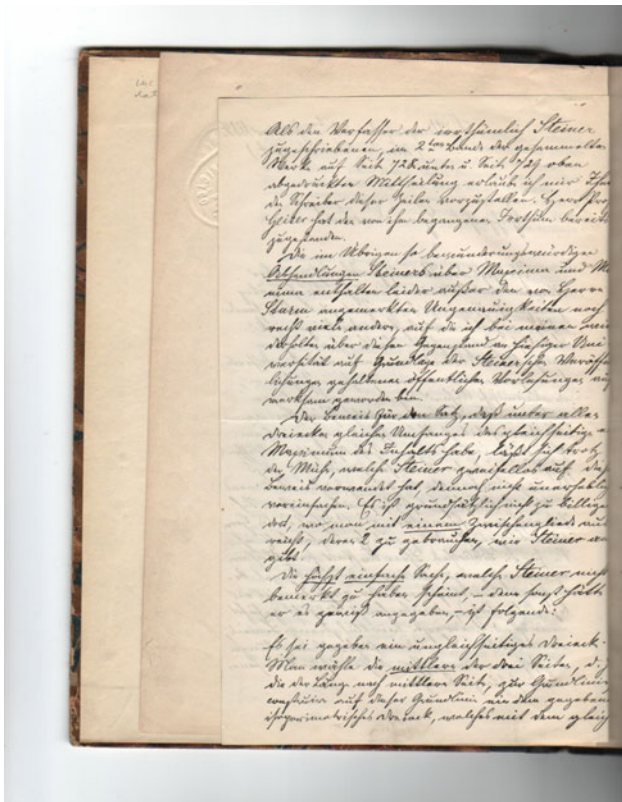 Als den Verfasser der irrthümlich Steiner
zugeschriebenen, im 2ten Bande der gesammelten
Werke auf Seite 728 unten u. Seite 729 oben
abgedruckten Mittheilung erlaube ich mir Ihnen
den Schreiber dieser Zeilen vorzustellen. Herr Pro
Geiser hat den von ihm begangenen Irrthum bereits
zugestanden.
Die im Übrigen so bewunderungswürdigen
Abhandlungen Steiners über Maxima und Mi
nima enthalten leider außer den von Herrn
Sturm angemerkten Ungenauigkeiten noch
recht viele andere, auf die ich bei meinen wie
derholten über diesen Gegenstand an hiesiger Uni
versität auf Grundlage der Steiner'schen Veröffent
lichungen gehaltenen öffentlichen Vorlesungen auf
merksam geworden bin.
Der Beweis für den Satz, daß unter allen
Dreiecken gleichen Umfanges das gleichseitige
Maximum des Inhalts habe, läßt sich trotz
der Mühe, welche Steiner zweifellos auf den
Beweis verwendet hat, dennoch nicht unerheblich
vereinfachen. Es ist grundsätzlich nicht zu billigen
dort, wo man mit einem Zwischengliede aus
reicht, deren 2 zu gebrauchen, wie Steiner
gibt.
Die höchst einfache Sache, welche Steiner nicht
bemerkt zu haben scheint, – denn sonst hätte
er es gewiß angegeben, – ist folgende:
Es sei gegeben ein ungleichseitiges Dreieck.
Man wähle die mittlere der drei Seiten, d. h
die der Länge nach mittlere Seite, zur Grundlinie
construire auf dieser Grundlinie ein dem gegebenen
isoperimetrisches Dreieck, welches mit dem gleich